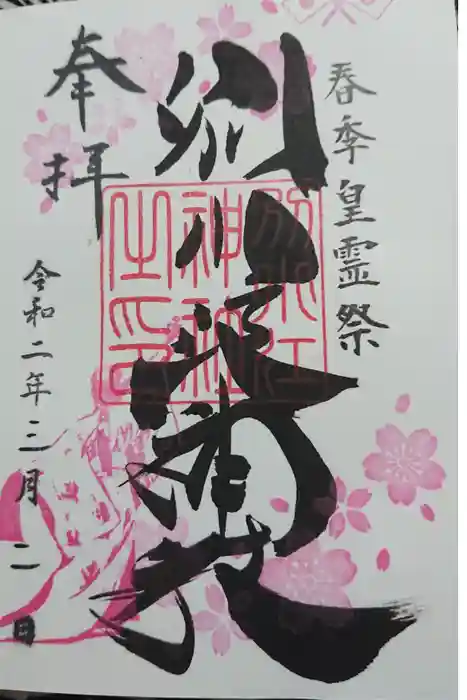 春季皇霊祭
別小江神社
奉拝
令和二年三月二日
別小江
神社
之印